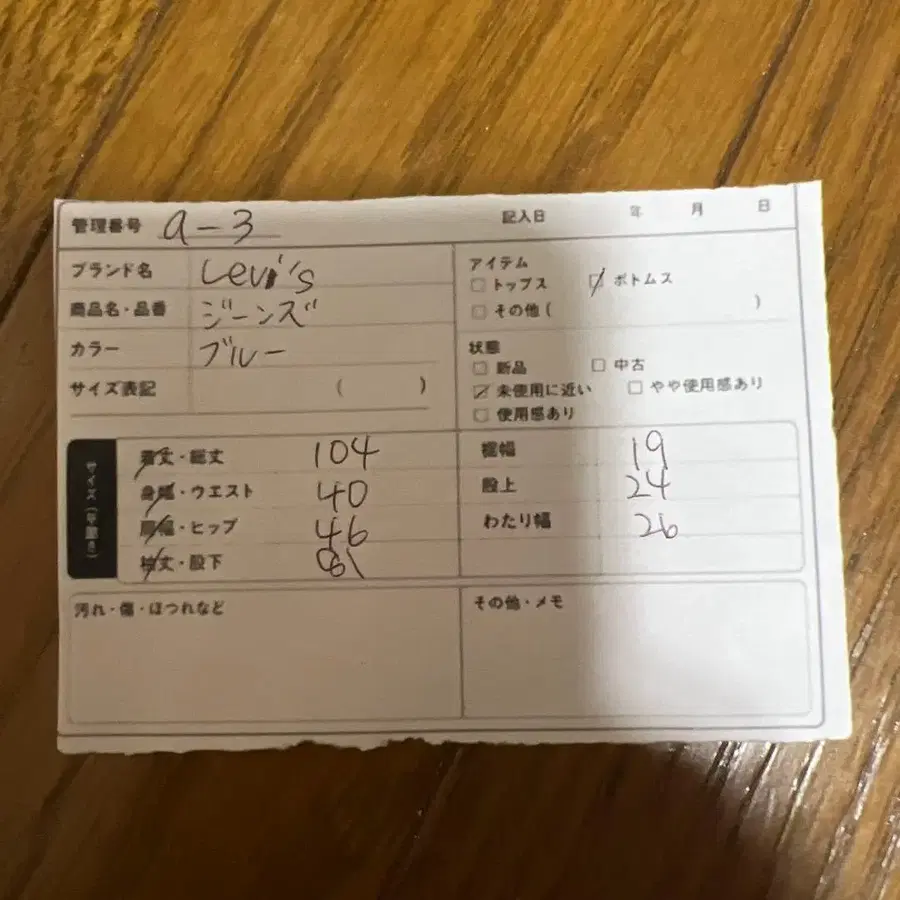 管理番号 a-3 記入日 年 月 日
ブランド名 Levi's
商品名・品番 ジーンズ
カラー ブルー
サイズ表記 ( )
アイテム
□ トップス ☑ ボトムス
□ その他 ( )
状態
□ 新品 □ 中古
☑ 未使用に近い □ やや使用感あり
□ 使用感あり
サイズ(平置き)
着丈・総丈 104
身幅・ウエスト 40
肩幅・ヒップ 46
裄丈・股下
裾幅 19
股上 24
わたり幅 26
汚れ・傷・ほつれなど
その他・メモ